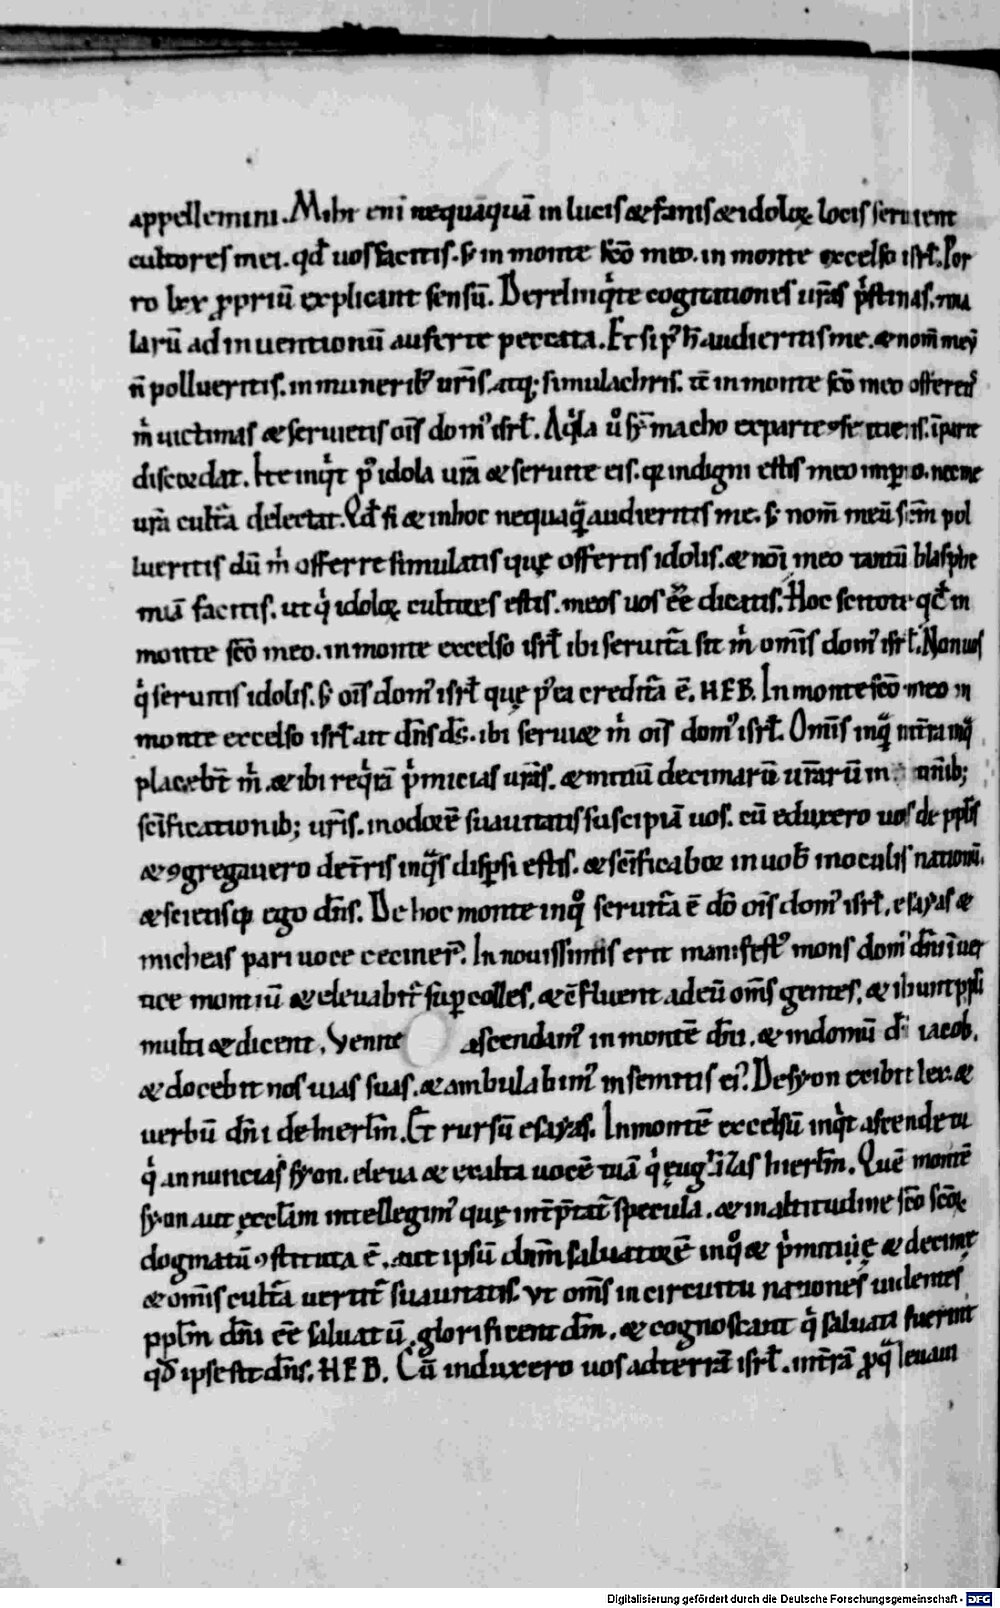 appellemini. Mihi eni nequāquā in lucis & fanis & idoloꝝ locis seruient
cultores mei. qđ uos facitis. sꝫ in monte sc̄o meo. in monte excelso isrł. Por
ro lxx ꝓpriū explicant sensū. Derelinq̇te cogitationes ur̄as p̓stinas.
larū adinuentionū auferte peccata. Et si p̓ h̄ audieritis me. & nom̄ meū
n̄ pollueritis. in munerib; ur̄is. atq; simulachris. tc̄ in monte sc̄o meo
m̓ uictimas & seruietis om̄is dom᷒ isrł. Aq̓la u̓ & sȳmacho ex parte ꝯsentiens. ī parte
discordat. Ite inq̓t p᷒ idola ur̄a & seruite eis. qꝫ indigni estis meo imꝑio. nec me
ur̄a cult᷒a delectat. Qđ si & in hoc nequaq̄ audieritis me. sꝫ nom̄ meū sc̄m pol
lueritis dū m̓ offerre simulatis quę offertis idolis. & nōi meo tantū blasphe
miā facitis. ut q̓ idoloꝝ cultores estis. meos uos ēē dicatis. Hoc scitote qđ in
monte sc̄o meo. in monte excelso isrł ibi seruitā sit m̓ omīs dom᷒ isrł. Non uos
q̓ seruitis idolis. sꝫ om̄is dom᷒ isrł quę p᷒ea creditā ē. HEB. In monte sc̄o meo in
monte excelso isrł ait dn̄s ds̄. ibi seruiet m̓ om̄is dom᷒ isrł. Omīs inq̄ in t̄ra in q̄
placebt̄ m̓. & ibi req̓rā p̓micias ur̄as. & initiū decimarū ur̄arū in omīb;
sc̄ificationib; ur̄is. in odorē suauitatis suscipiā uos. cū eduxero uos de ppl̄is
& ꝯgregauero de t̄ris in q̄s disꝑsi estis. & sc̄ificabor in uob̄ in oculis nationū.
& scietis qꝫ ego dn̄s. De hoc monte in q̊ seruitā ē dō om̄is dom᷒ isrł. esayas &
micheas pari uoce cecinert̄. In nouissimis erit manifest᷒ mons dom᷒ dn̄i in uer
tice montiū & eleuabit᷑ suꝑ colles. & c̄fluent ad eū om̄s gentes. & ibunt ppl̄i
multi & dicent. Venite ascendam᷒ in montē dn̄i. & in domū dī iacob.
& docebit nos uias suas. & ambulabim᷒ in semitis ei᷒. De syon exibit lex. &
uerbū dn̄i de hierl̄m. Et rursū esayas. In montē excelsū inq̓t ascende tu
q̓ annuncias syon. eleua & exalta uocē tuā q̓ ęug̓l̄izas hierl̄m. Quē montē
syon aut ęccl̄am intellegim᷒ quę int̄p̄tat᷑ specula. & in altitudine sc̄o sc̄oꝝ
dogmatū ꝯstituta ē. aut ipsū dn̄m saluatorē in q̊ & p̓mitiuę & decimę
& omīs cult᷒a uertit᷑ suauitatis. Vt om̄s in circuitu nationes uidentes
ppl̄m dn̄i ēē saluatū. glorificent dn̄m. & cognoscant q̓ saluati fuerint
qđ ipse est dn̄s. HEB. Cū induxero uos ad terrā isrł. in t̄rā ꝓ q̄ leuaui